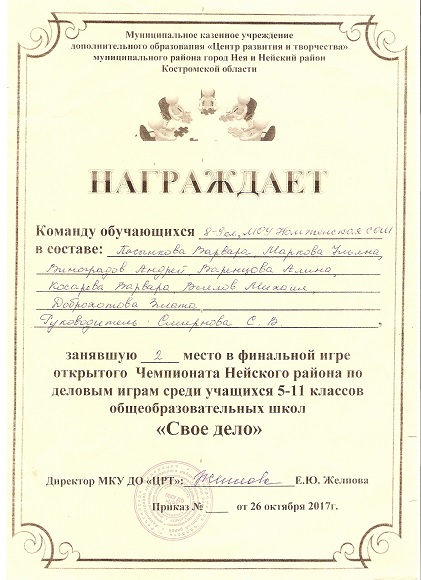 Муниципальное казенное учреждение
дополнительного образования «Центр развития и творчества»
муниципального района город Нея и Нейский район
Костромской области
НАГРАЖДАЕТ
Команду обучающихся 8-9 кл. МОУ Номженская СОШ
в составе: Посанкова Варвара, Маркова Ульяна,
Виноградов Андрей Варенцова Алина,
Косарева Варвара Михаил,
Доброхотова Злата,
Руководитель: Смирнова С. В.
занявшую 2 место в финальной игре
открытого Чемпионата Нейского района по
деловым играм среди учащихся 5-11 классов
общеобразовательных школ
«Свое дело»
Директор МКУ ДО «ЦРТ»: Е.Ю. Желнова
Приказ № ____ от 26 октября 2017г.